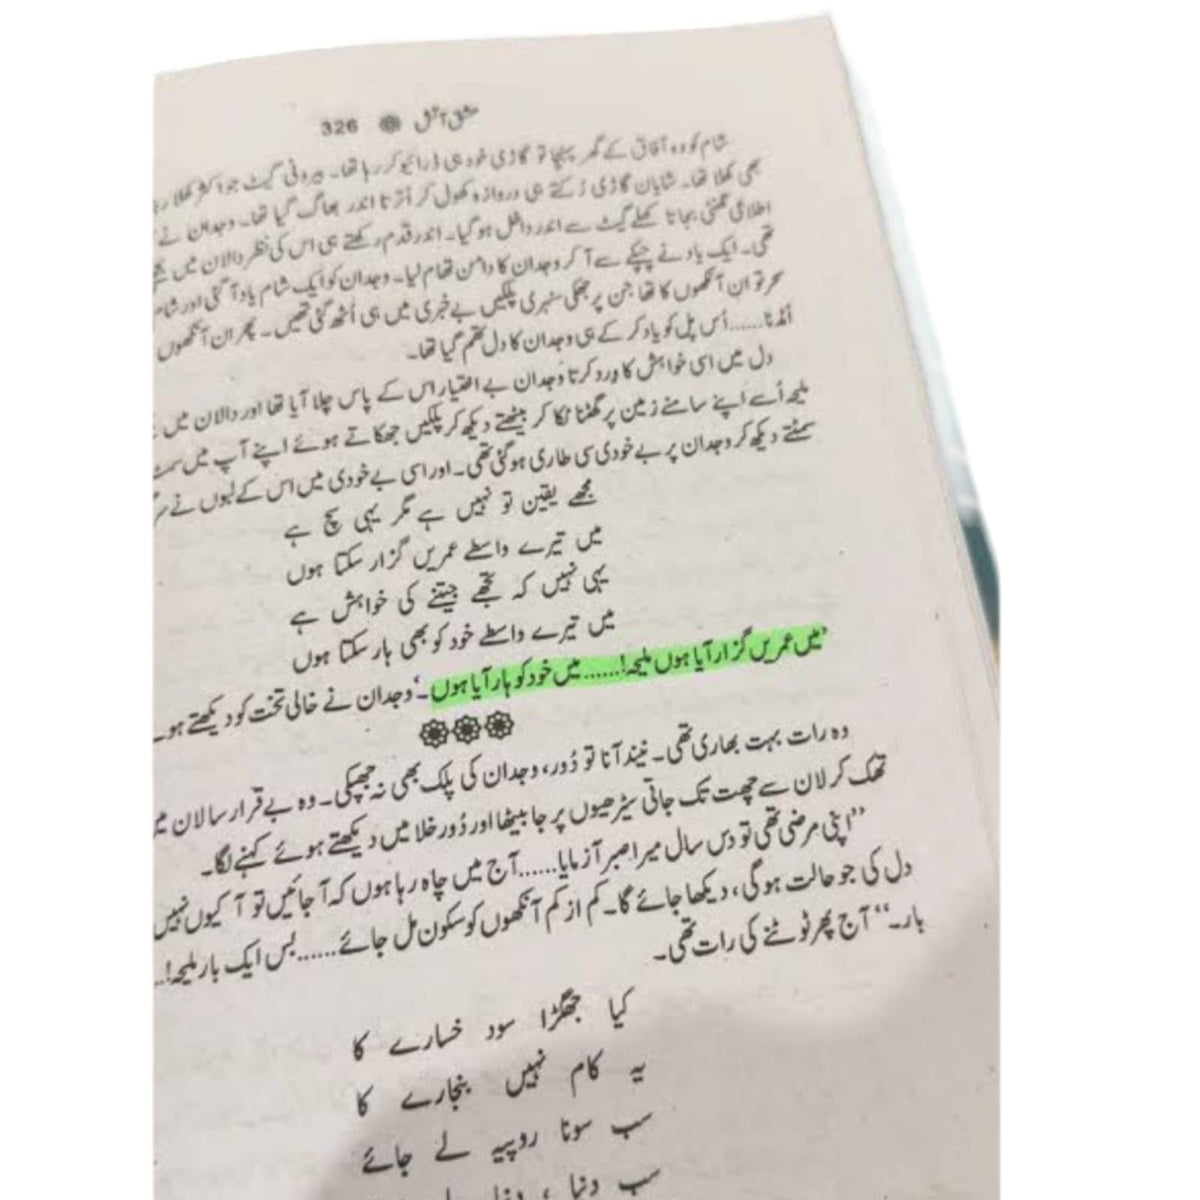 عشق آتش ۞ 326
شام کو وہ آفاق کے گھر پہنچا تو گاڑی خود ہی ڈرائیو کر رہا تھا۔ بیرونی گیٹ جو اکثر کھلا
بھی کھلا تھا۔ شایان گاڑی رُکتے ہی دروازہ کھول کر اُترتا اندر بھاگ گیا تھا۔ وجدان نے
اطلاعی گھنٹی بجاتا کھلے گیٹ سے اندر داخل ہو گیا۔ اندر قدم رکھتے ہی اس کی نظر دالان میں
تھی۔ ایک یاد نے چپکے سے آ کر وجدان کا دامن تھام لیا۔ وجدان کو ایک شام یاد آ گئی اور
سحر تو ان آنکھوں کا تھا جن پر جھکی سنہری پلکیں بے خبری میں ہی اُٹھ گئی تھیں۔ پھر ان آنکھوں
اُڈنا......اُس پل کو یاد کر کے ہی وجدان کا دل تھم گیا تھا۔
دل میں اسی خواہش کا ورد کرتا وجدان بے اختیار اس کے پاس چلا آیا تھا اور دالان میں
ملیحہ اُسے اپنے سامنے زمین پر گھٹنا ٹکا کر بیٹھتے دیکھ کر پلکیں جھکاتے ہوئے اپنے آپ میں
سمٹتے دیکھ کر وجدان پر بے خودی سی طاری ہو گئی تھی۔ اور اسی بے خودی میں اس کے لبوں نے
مجھے یقین تو نہیں ہے مگر یہی سچ ہے
میں تیرے واسطے عمریں گزار سکتا ہوں
یہی نہیں کہ تجھے جیتنے کی خواہش ہے
میں تیرے واسطے خود کو بھی ہار سکتا ہوں
’میں عمریں گزار آیا ہوں ملیحہ!......میں خود کو ہار آیا ہوں۔‘ وجدان نے خالی تخت کو دیکھتے
وہ رات بہت بھاری تھی۔ نیند آنا تو دُور، وجدان کی پلک بھی نہ جھپکی۔ وہ بے قرار سا لان
تھک کر لان سے چھت تک جاتی سیڑھیوں پر جا بیٹھا اور دُور خلا میں دیکھتے ہوئے کہنے لگا۔
’’اپنی مرضی تھی تو دس سال میرا صبر آزمایا......آج میں چاہ رہا ہوں کہ آ جائیں تو آ کیوں نہیں
دل کی جو حالت ہو گی، دیکھا جائے گا۔ کم از کم آنکھوں کو سکون مل جائے......بس ایک بار ملیحہ!..
بار۔‘‘ آج پھر ٹوٹنے کی رات تھی۔
کیا جھگڑا سود خسارے کا
یہ کام نہیں بنجارے کا
سب سونا روپیہ لے جائے
سب دنیا،